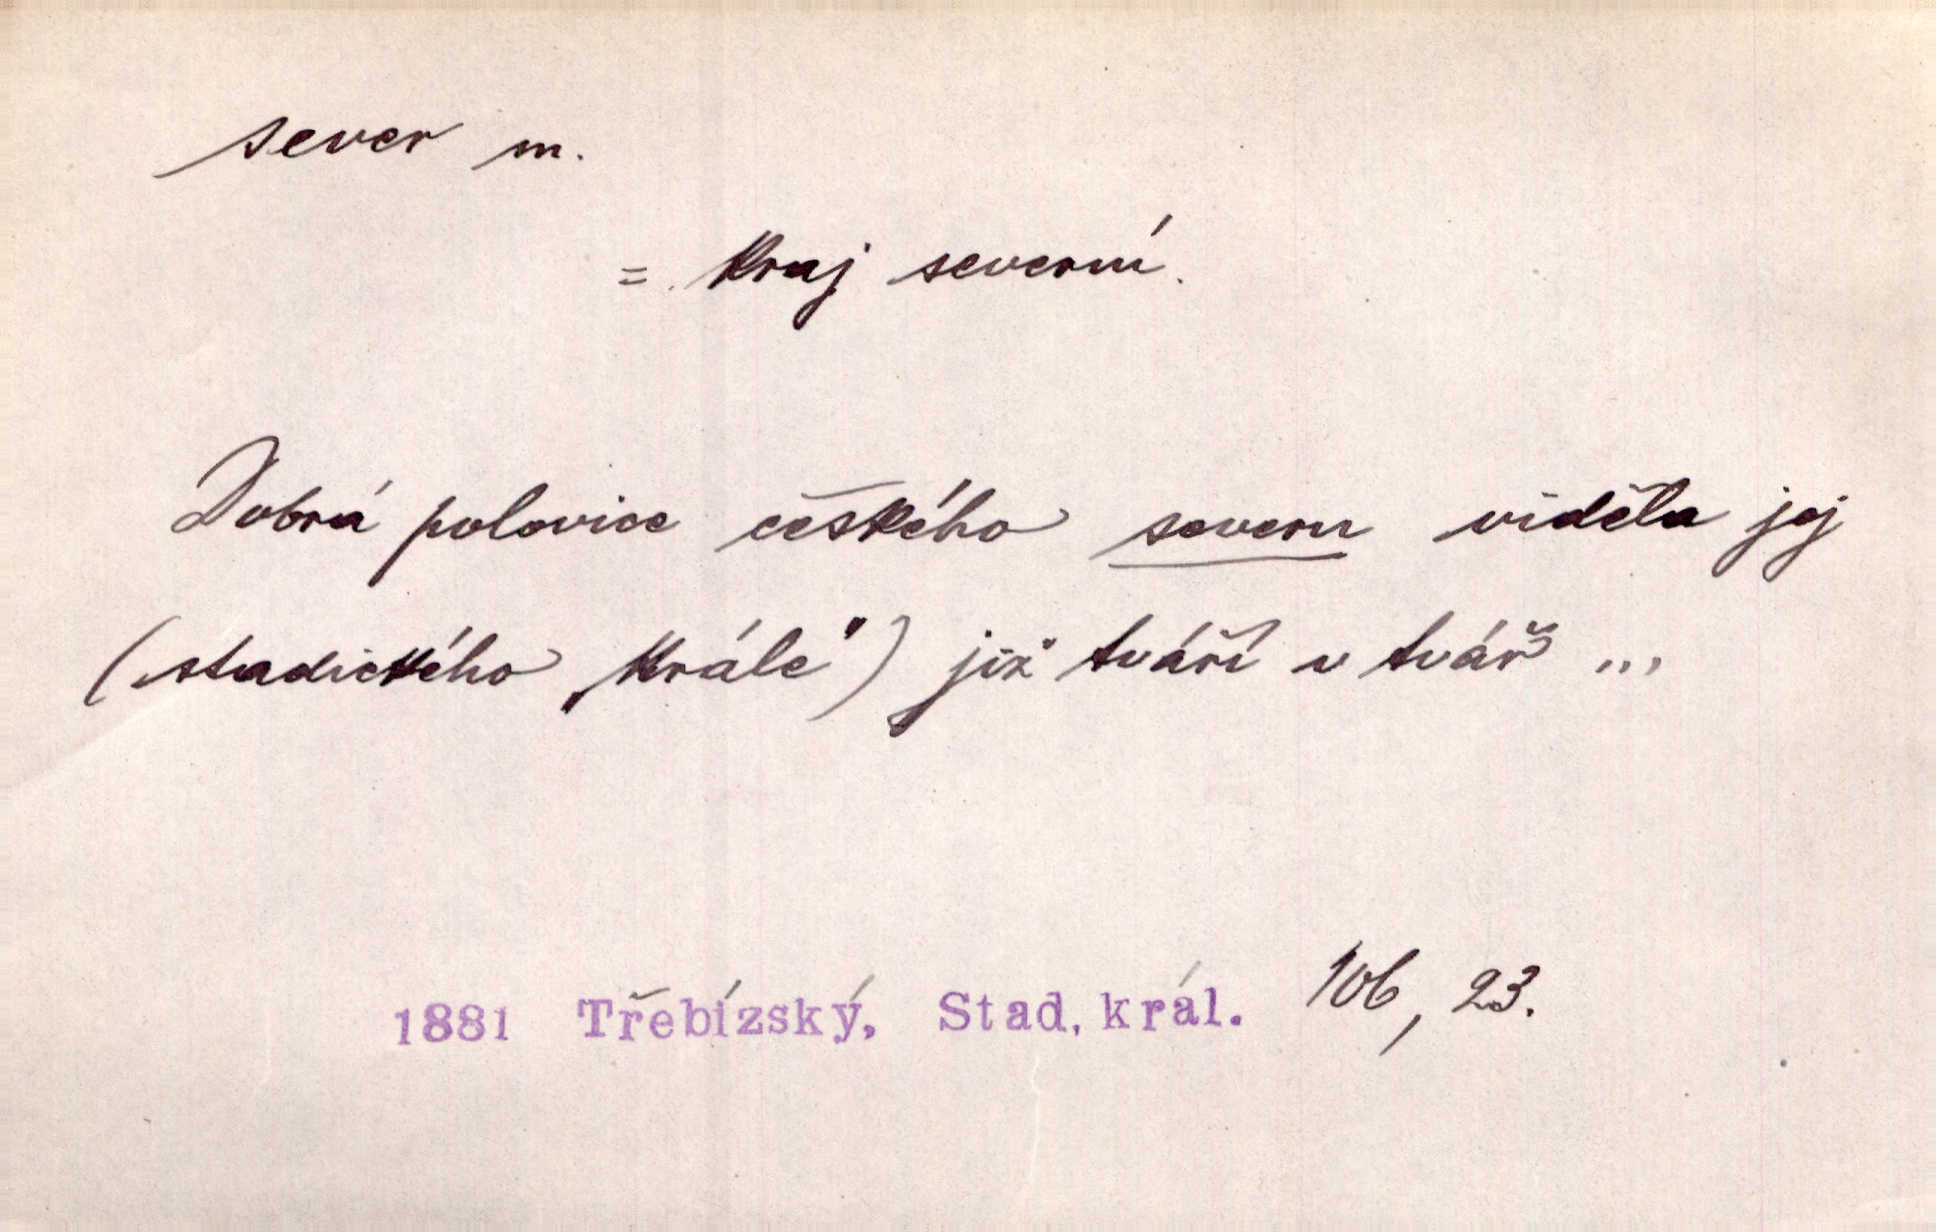 sever m.
= Kraj severní.
Dobrá polovice českého severu viděla jej
(stadického „krále") již tváří v tvář ...
1881 Třebízský, Stad. král. 106, 23.